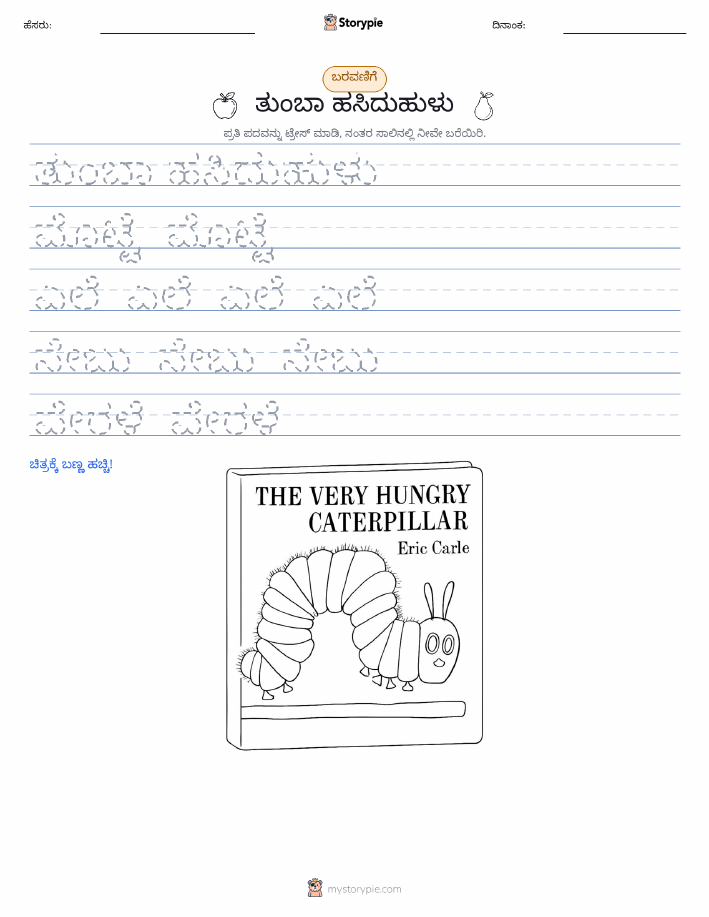 ಹೆಸರು: Storypie ದಿನಾಂಕ:
ಬರವಣಿಗೆ
ತುಂಬಾ ಹಸಿದುಹುಳು
ಪ್ರತಿ ಪದವನ್ನು ಟ್ರೇಸ್ ಮಾಡಿ, ನಂತರ ಸಾಲಿನಲ್ಲಿ ನೀವೇ ಬರೆಯಿರಿ.
ತುಂಬಾ ಹಸಿದುಹುಳು
ಮೊಟ್ಟೆ ಮೊಟ್ಟೆ
ಎಲೆ ಎಲೆ ಎಲೆ ಎಲೆ
ಸೇಬು ಸೇಬು ಸೇಬು
ಪೇರಳೆ ಪೇರಳೆ
ಚಿತ್ರಕ್ಕೆ ಬಣ್ಣ ಹಚ್ಚಿ!
THE VERY HUNGRY
CATERPILLAR
Eric Carle
mystorypie.com